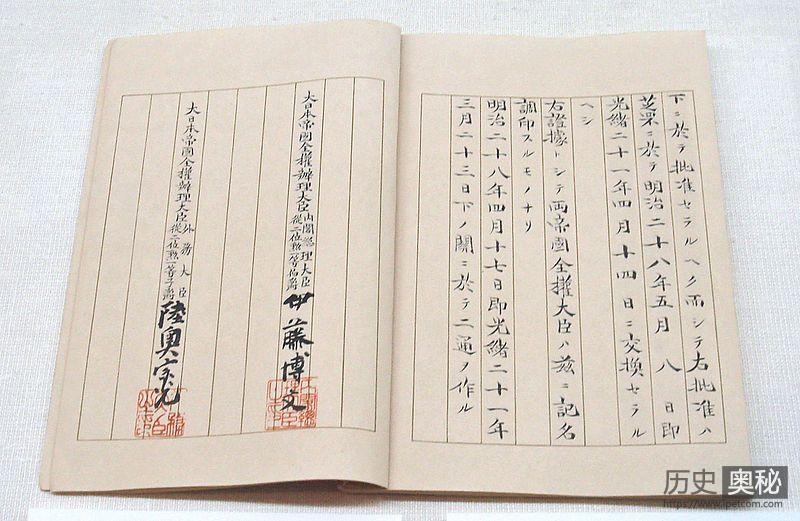 下ニ於テ批准セラルヘク而シテ右批准ハ
芝罘ニ於テ明治二十八年五月八日即
光緒二十一年四月十四日ニ交換セラル
ヘシ
右證據トシテ両帝國全權大臣ハ茲ニ記名
調印スルモノナリ
明治二十八年四月十七日即光緒二十一年
三月二十三日下ノ關ニ於テ二通ヲ作ル
大日本帝國全權辦理大臣
内閣総理大臣
從二位勲一等伯爵
伊藤博文
大日本帝國全權辦理大臣
外務大臣
從二位勲一等子爵
陸奥宗光
历史奥秘
https://www.ipetcom.com